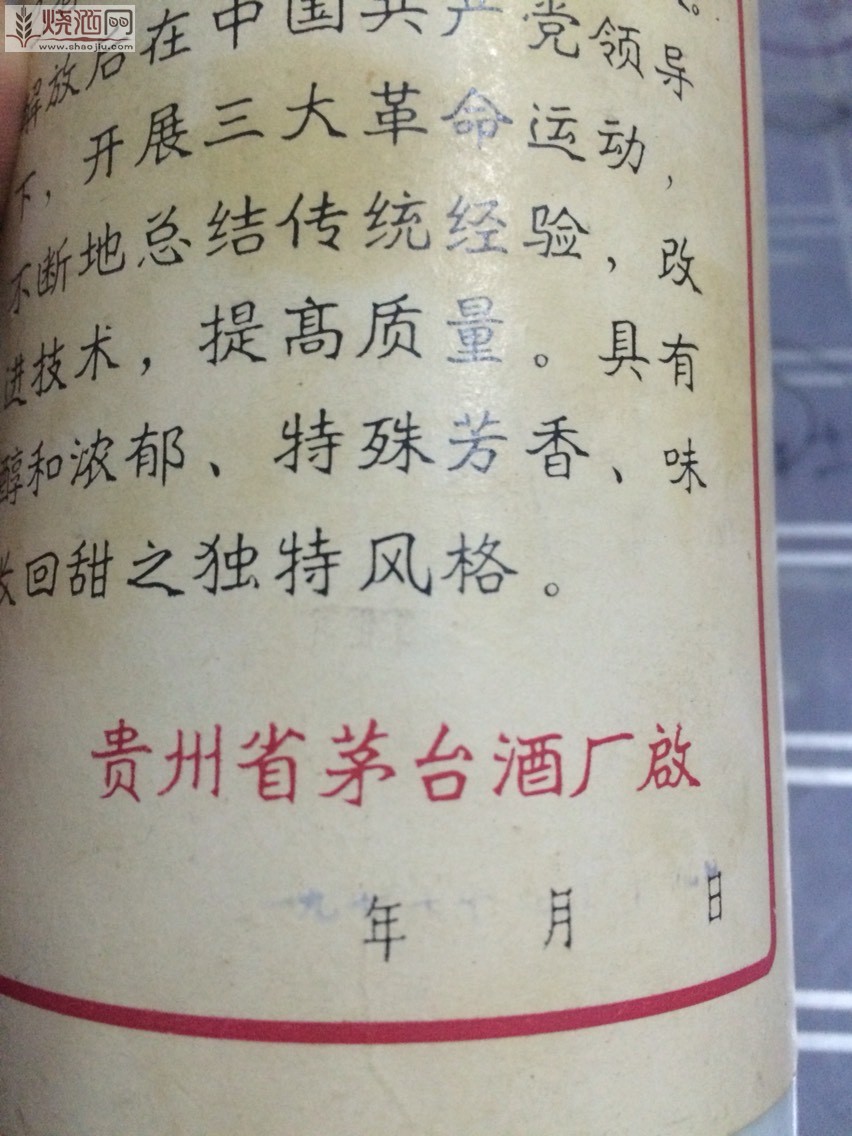 烧酒网
www.shaojiu.com
解放后在中国共产党领导
下，开展三大革命运动，
不断地总结传统经验，改
进技术，提高质量。具有
醇和浓郁、特殊芳香、味
回甜之独特风格。
贵州省茅台酒厂啟
年 月 日